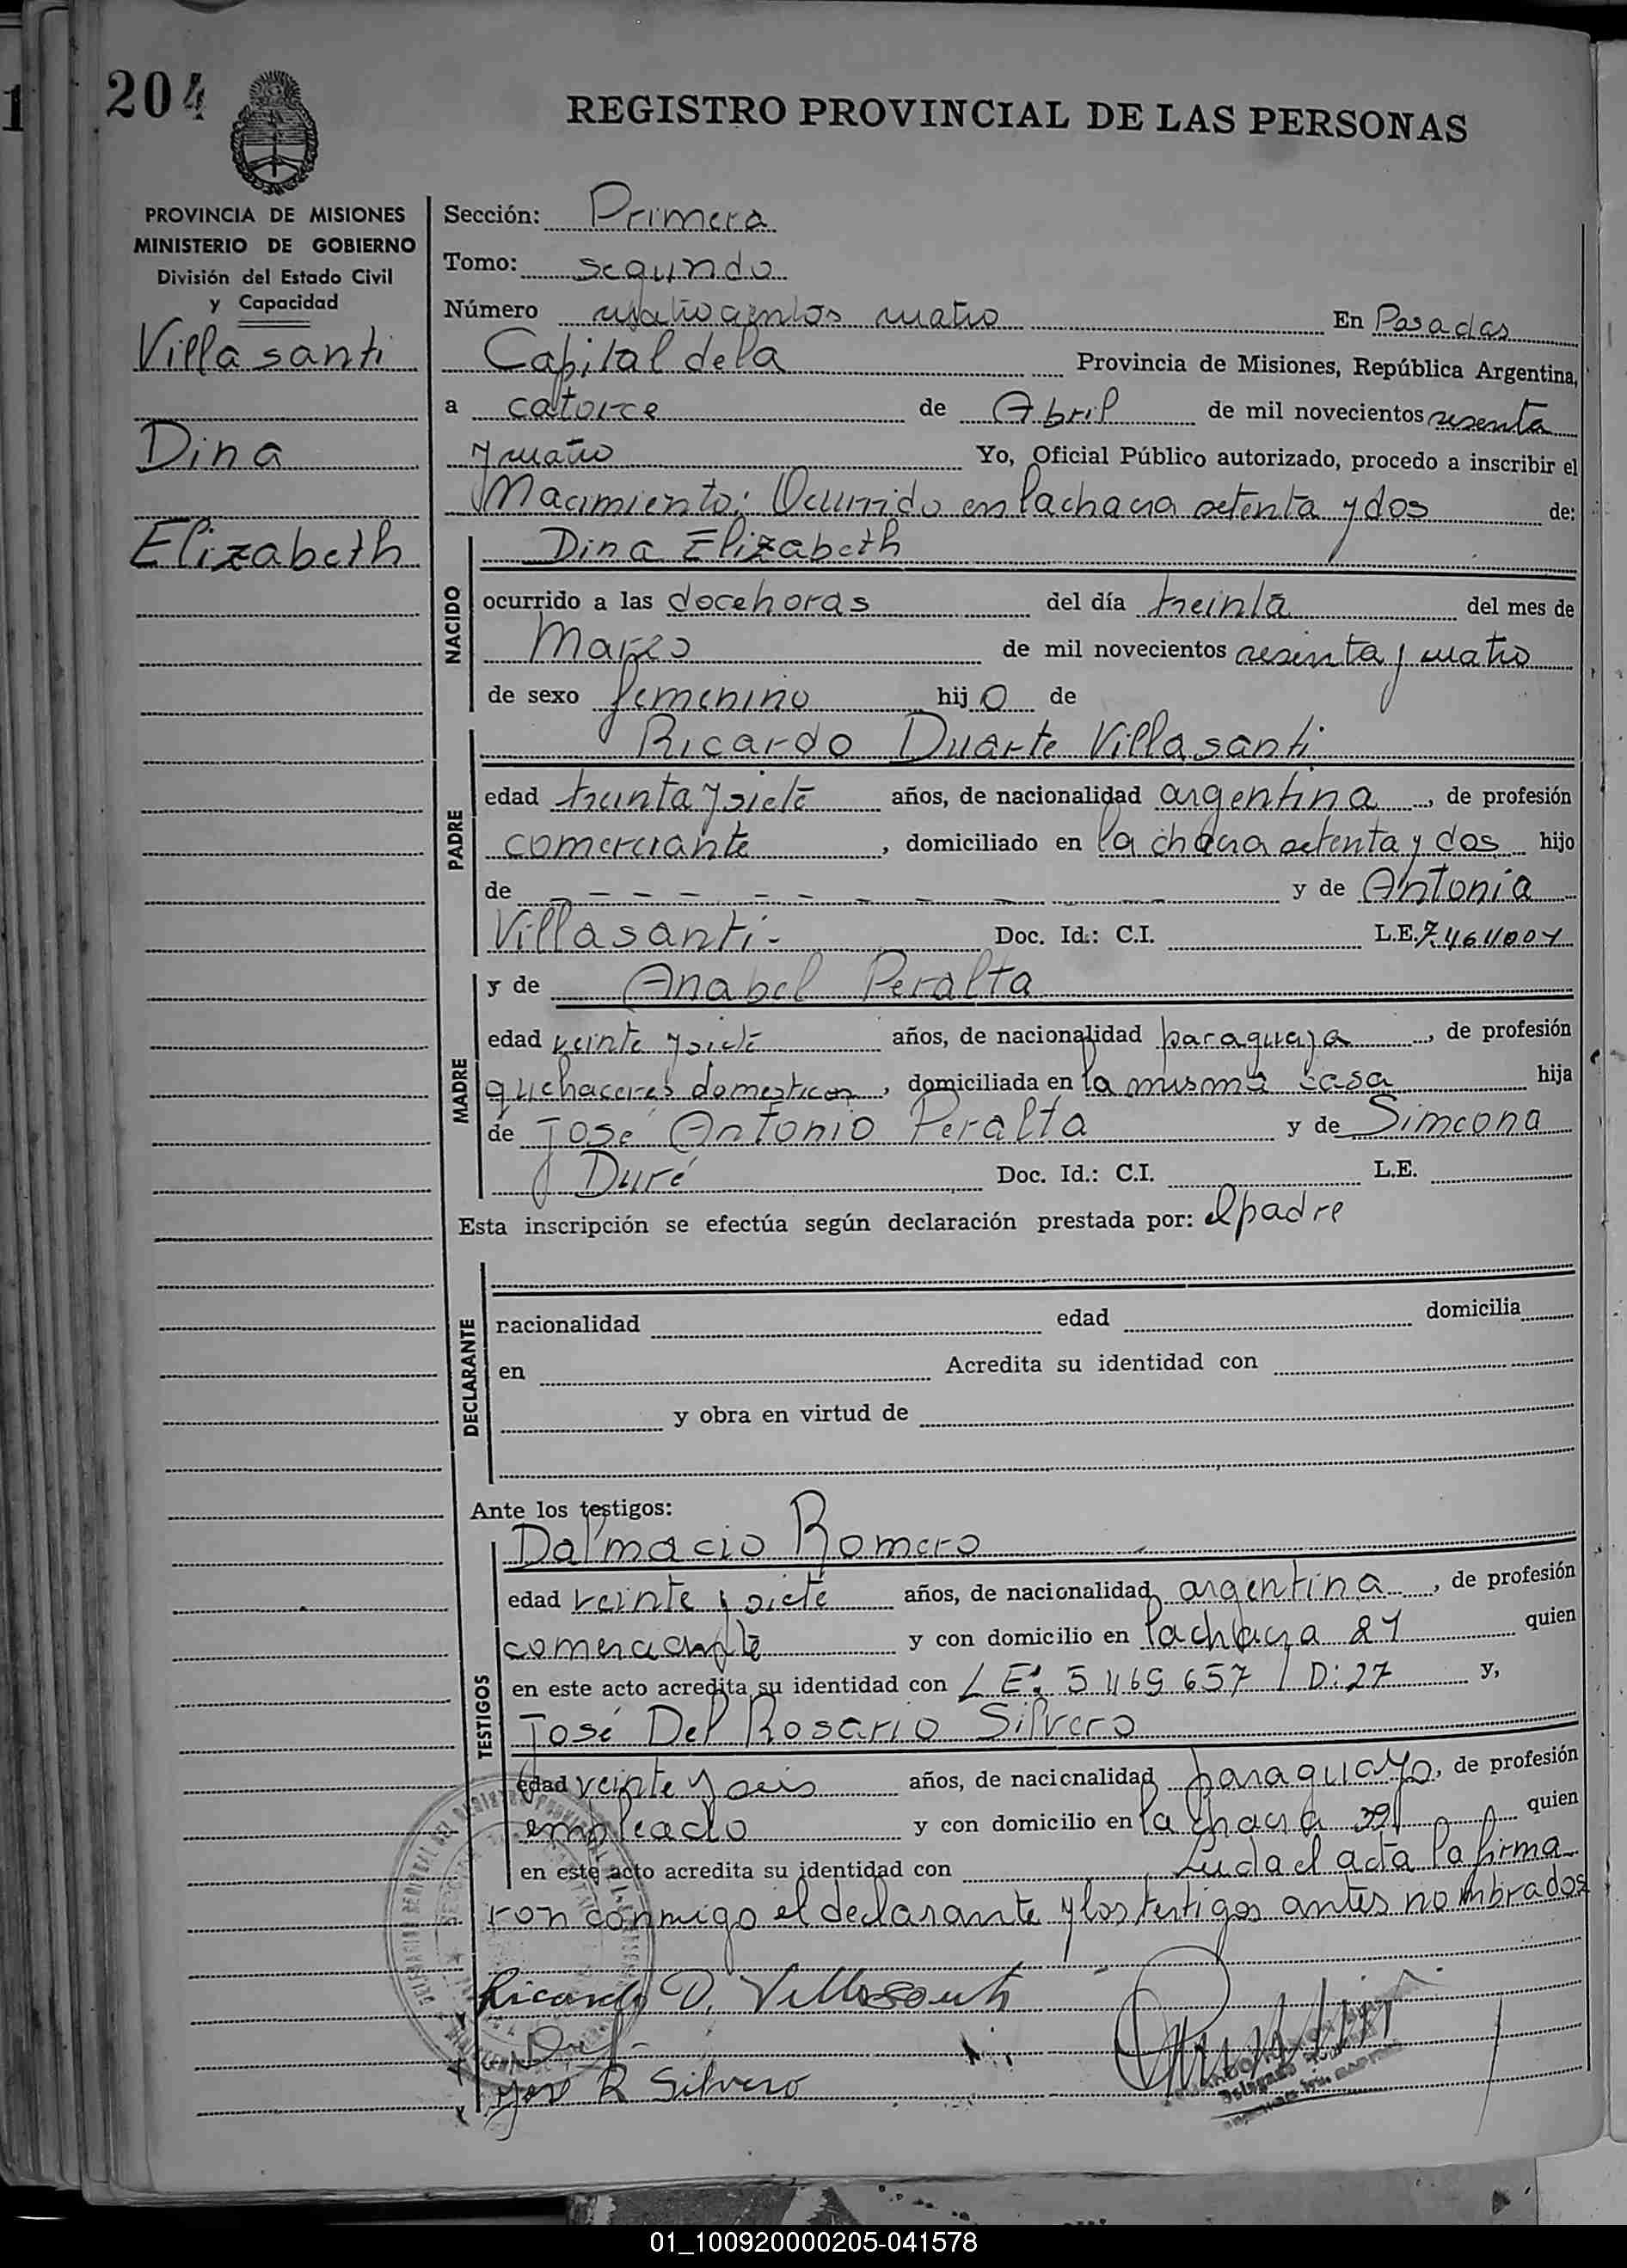 204
REGISTRO PROVINCIAL DE LAS PERSONAS
PROVINCIA DE MISIONES
MINISTERIO DE GOBIERNO
División del Estado Civil
y Capacidad
Villasanti
Dina
Elizabeth
Sección: Primera
Tomo: segundo
Número cuatrocientos cuatro En Posadas
Capital de la Provincia de Misiones, República Argentina,
a catorce de Abril de mil novecientos sesenta
y cuatro Yo, Oficial Público autorizado, procedo a inscribir el
Nacimiento: Ocurrido en la chacra setenta y dos de:
NACIDO
Dina Elizabeth
ocurrido a las doce horas del día treinta del mes de
Marzo de mil novecientos sesenta y cuatro
de sexo femenino hij o de
PADRE
Ricardo Duarte Villasanti
edad treinta y siete años, de nacionalidad argentina, de profesión
comerciante, domiciliado en la chacra setenta y dos hijo
de - - - - - - - - - y de Antonia
Villasanti- Doc. Id.: C.I. L.E.
MADRE
y de Anabel Peralta
edad veinte y siete años, de nacionalidad paraguaya, de profesión
quehaceres domesticos, domiciliada en la misma casa hija
de José Antonio Peralta y de Simeona
Duré Doc. Id.: C.I. L.E.
Esta inscripción se efectúa según declaración prestada por: el padre
DECLARANTE
nacionalidad edad domicilia
en Acredita su identidad con
y obra en virtud de
Ante los testigos:
TESTIGOS
Dalmacio Romero
edad veinte y siete años, de nacionalidad argentina, de profesión
comerciante y con domicilio en la chacra 21 quien
en este acto acredita su identidad con L E: 5469657 / D: 27 y,
José Del Rosario Silvero
edad veinte y seis años, de nacionalidad paraguayo, de profesión
empleado y con domicilio en la chacra quien
en este acto acredita su identidad con Leida el acta la firma
ron conmigo el declarante y los testigos antes nombrados
Ricardo D. Villasanti
José R Silvero
01_100920000205-041578